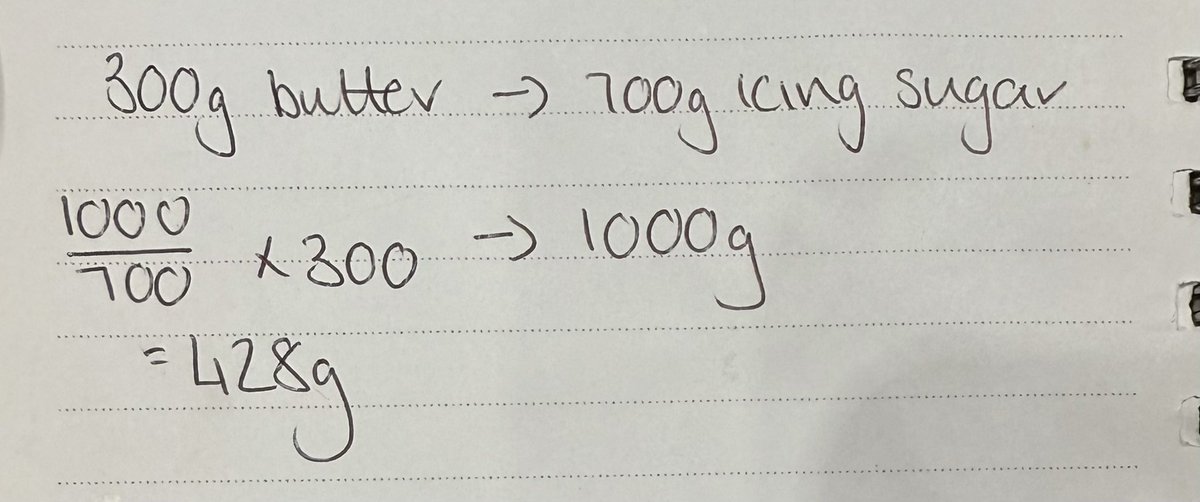 300g butter → 700g icing sugar
1000/700 × 300 → 1000g
= 428g